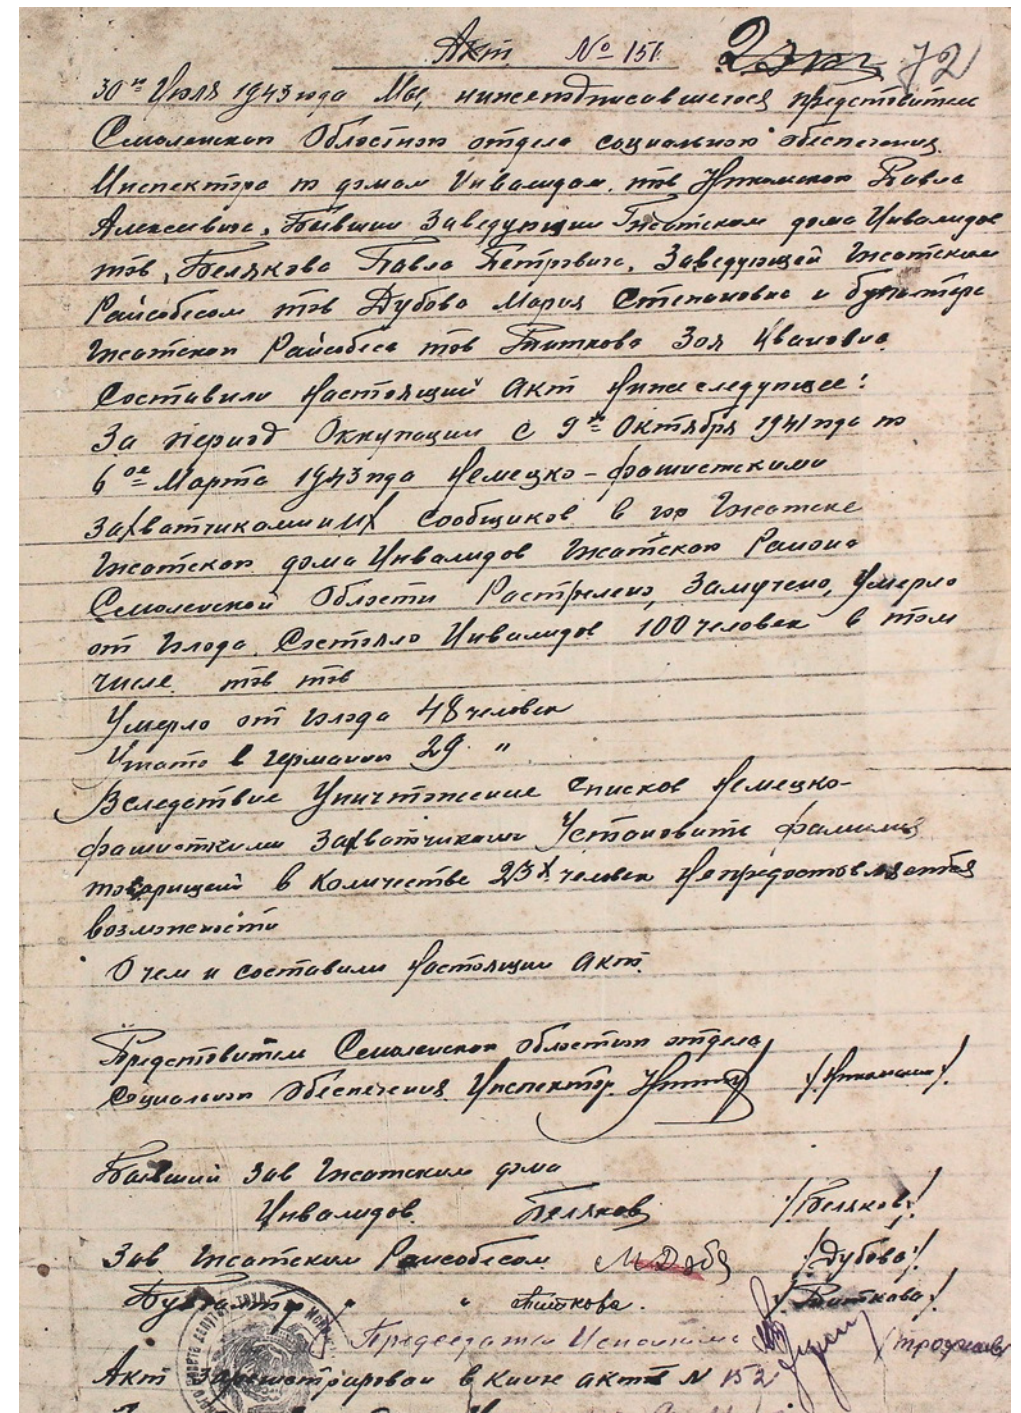 Акт № 151. 2 экз 72
30го Июля 1943 года Мы, нижеподписавшегося представители
Смоленской Областной отдела социального обеспечения.
Инспектора по домам Инвалидам. тов Павла
Алексеевича, Бывший Заведующий Гжатским дома Инвалидов
тов, Белякова Павла Петровича, Заведующей Гжатским
Райсобесом тов Дубова Мария Степановна и бухгалтера
Гжатского Райсобеса тов Титкова Зоя Ивановна.
Составили Настоящий акт Нижеследующее:
За период Оккупации с 9го Октября 1941 года по
6ое Марта 1943 года Немецко-фашистскими
Захватчиками и их сообщиков в гор Гжатске
Гжатского дома Инвалидов Гжатского Района
Смоленской Области Растрелено, Замучено, Умерло
от Голода. Состояло Инвалидов 100 человек в том
числе. тов тов
Умерло от голода 48 человек
Угнато в германию 29 "
Вследствие Уничтожение Списков Немецко-
фашисткими Захватчиками Установить фамилии
товарищей в Количестве 23х человек Непредоставляется
возможности
О чем и составили Настоящий акт.
Представитель Смоленского областного отдела
Социального Обеспечения Инспектор.
Бывший Зав Гжатским дома
Инвалидов. Беляков /Беляков/
Зав Гжатским Райсобесом /Дубова/
Бухгалтер " " Титкова. /Титкова/
Председатель Исполкома
Акт Зарегистрирован в книге актов N 152